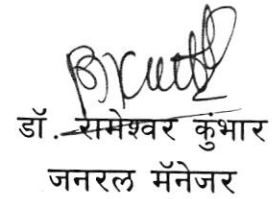 डॉ. रामेश्वर कुंभार
जनरल मॅनेजर